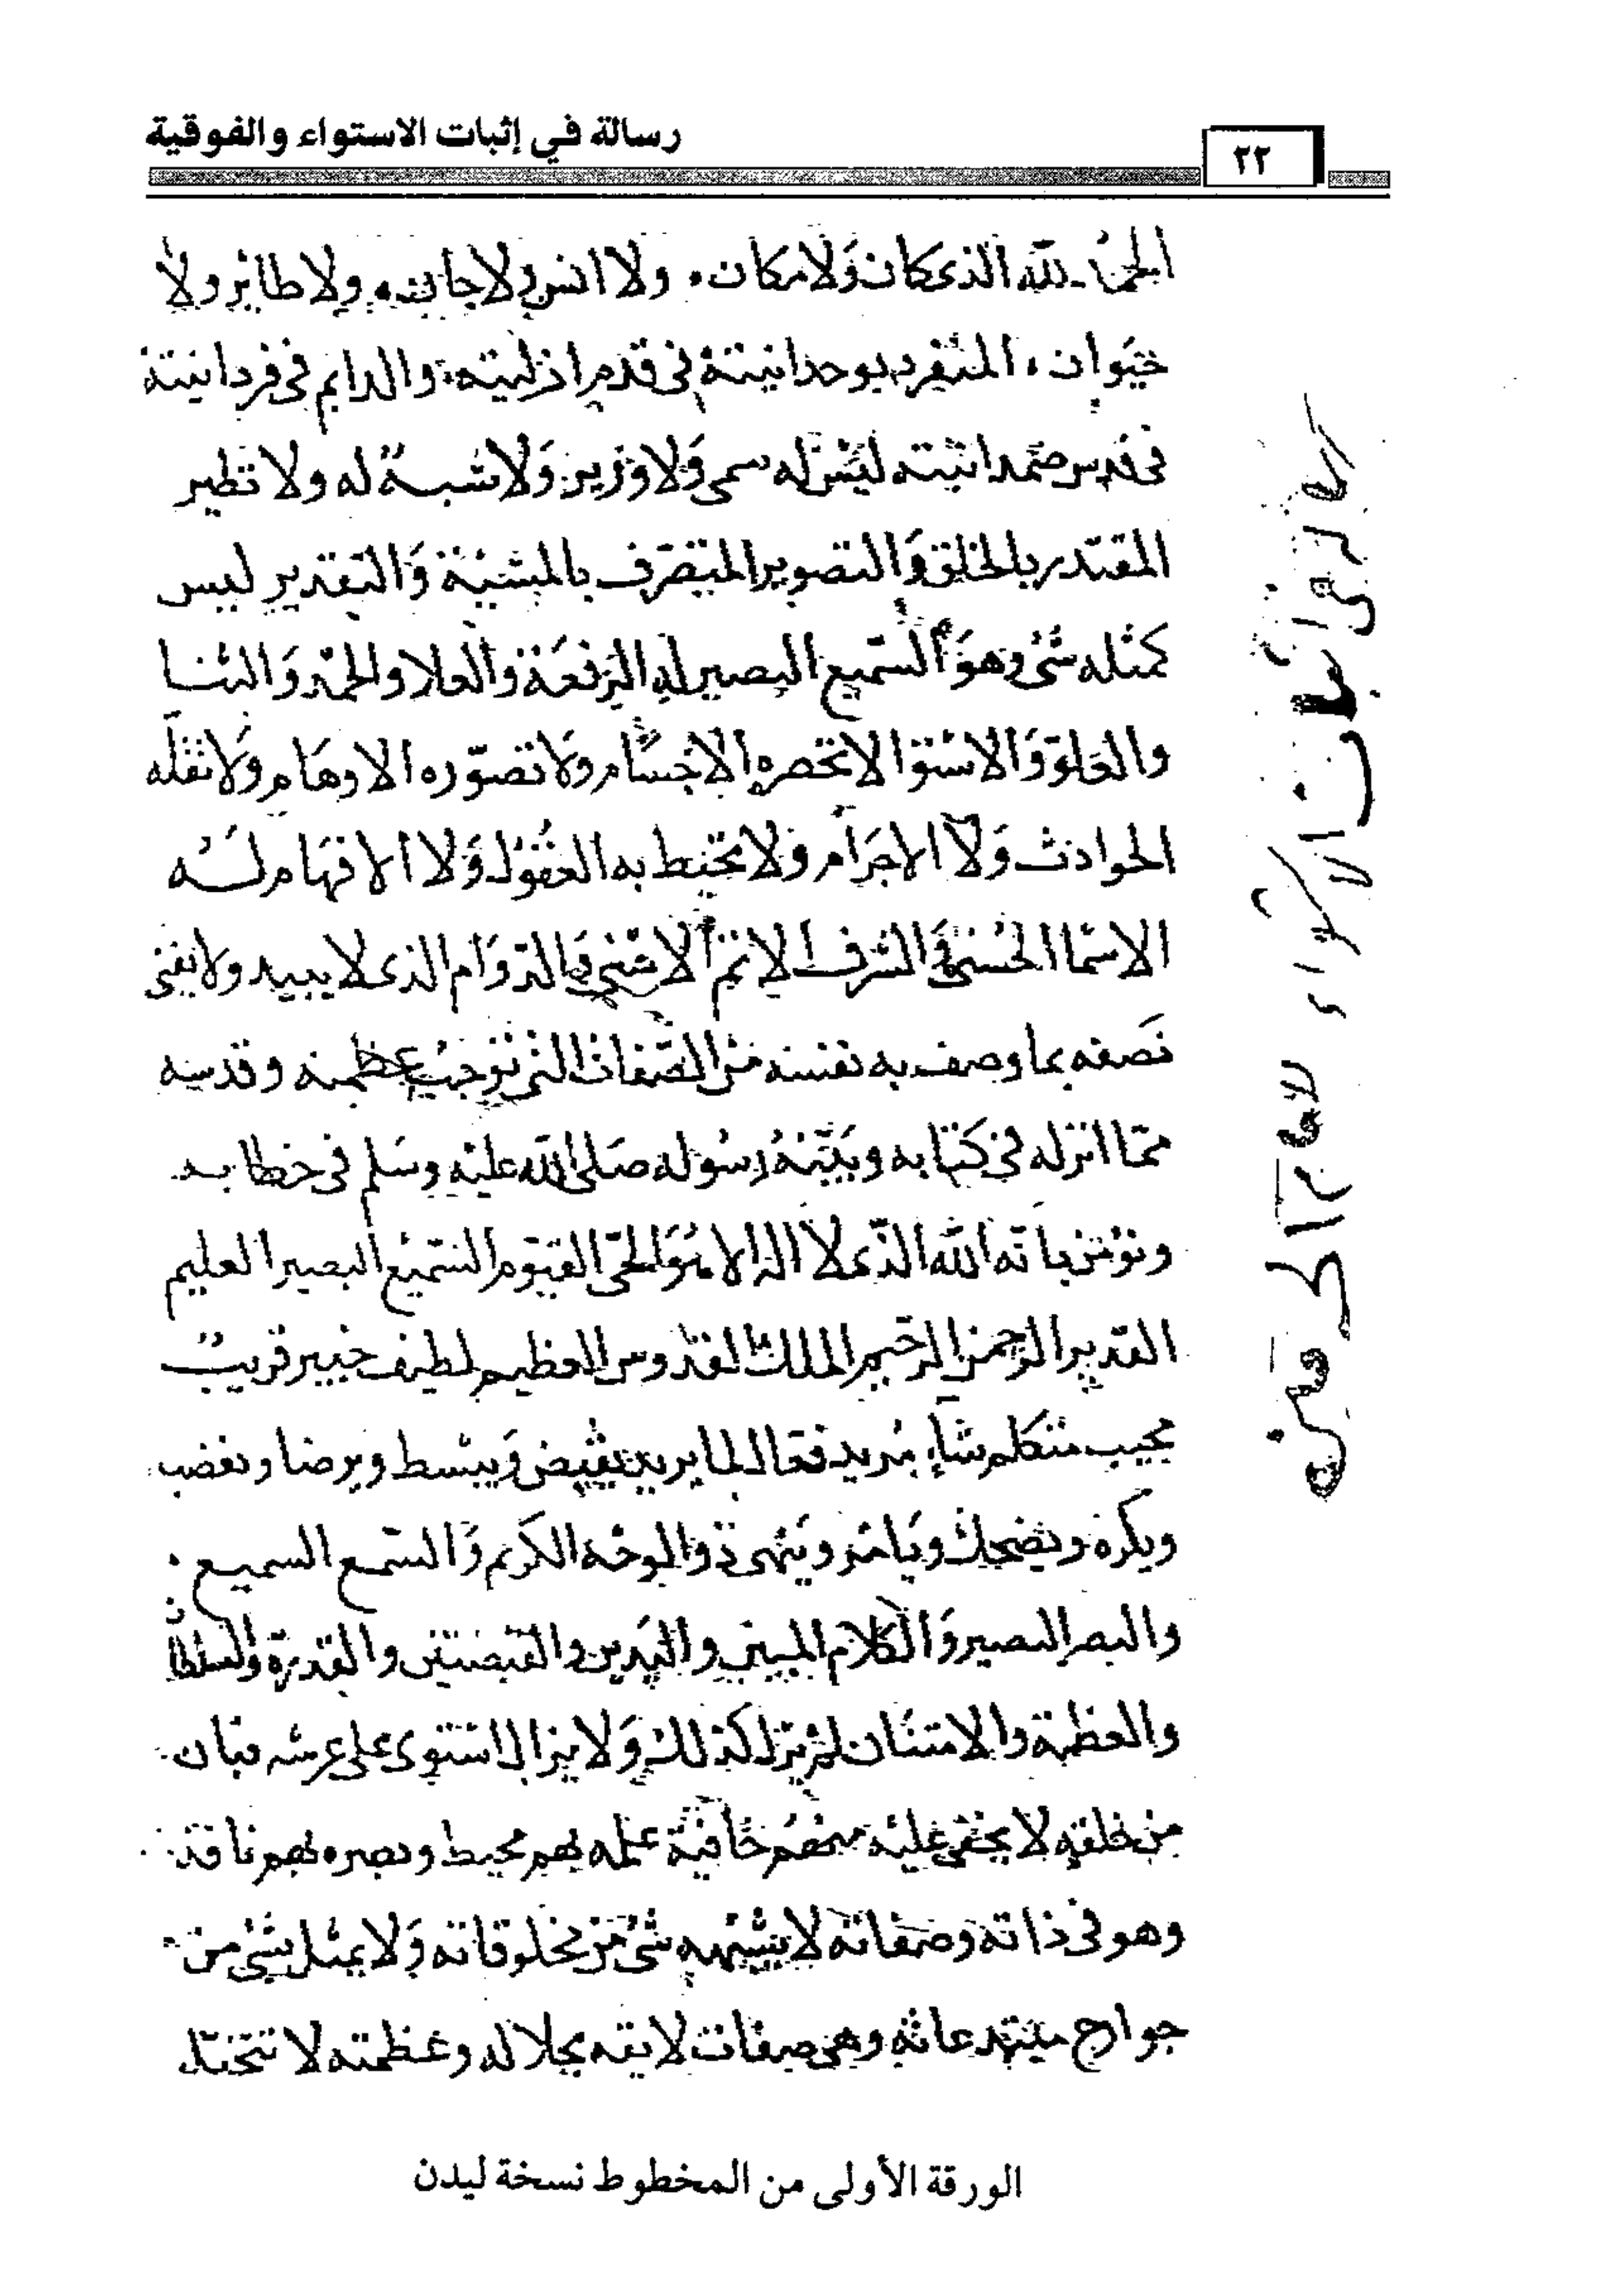 رسالة في إثبات الاستواء والفوقية
٢٢
الحمد لله الذى كان ولا مكان، ولا انس ولا جان، ولا طائر ولا
حيوان، المنفرد بوحدانيته فى قدم ازليته، والدايم فى فردانيته
فى قدس صمدانيته ليس له سمى ولا وزير ولا شبه له ولا نظير
المقتدر بالخلق والتصوير المتصرف بالمشيئة والتقدير ليس
كمثله شئ وهو السميع البصير له الرفعة والعلا والحمد والثنا
والعلو والاستوا لا تحصره الاجسام ولا تصوره الاوهام ولا تقله
الحوادث ولا الاجرام ولا تحيط به العقول ولا الافهام له
الاسما الحسنى والشرف الاتم الاسنى والدوام الذى لا يبيد ولا يفنى
نصفه بما وصف به نفسه من الصفات التى توجب عظمته وقدسه
مما انزله فى كتابه وبينه رسوله صلى الله عليه وسلم فى خطابه
ونؤمن بانه الله الذى لا اله الا هو الحى القيوم السميع البصير العليم
القدير الرحمن الرحيم الملك القدوس العظيم لطيف خبير قريب
مجيب متكلم شاء مريد فعال لما يريد يقبض ويبسط ويرضا ويغضب
ويكره ويضحك ويامر وينهى ذو الوجه الكريم والسمع السميع
والبصر البصير والكلام المبين واليدين والقبضتين والقدرة والسلطان
والعظمة والامتنان لم يزل كذلك ولا يزال استوى على عرشه فبان
من خلقه لا يخفى عليه منهم خافية علمه بهم محيط وبصره بهم نافذ
وهو فى ذاته وصفاته لا يشبهه شئ من مخلوقاته ولا يمثل بشئ من
جوارح مبتدعاته وهى صفات لايقه بجلاله وعظمته لا تتخيل
الورقة الأولى من المخطوط نسخة ليدن